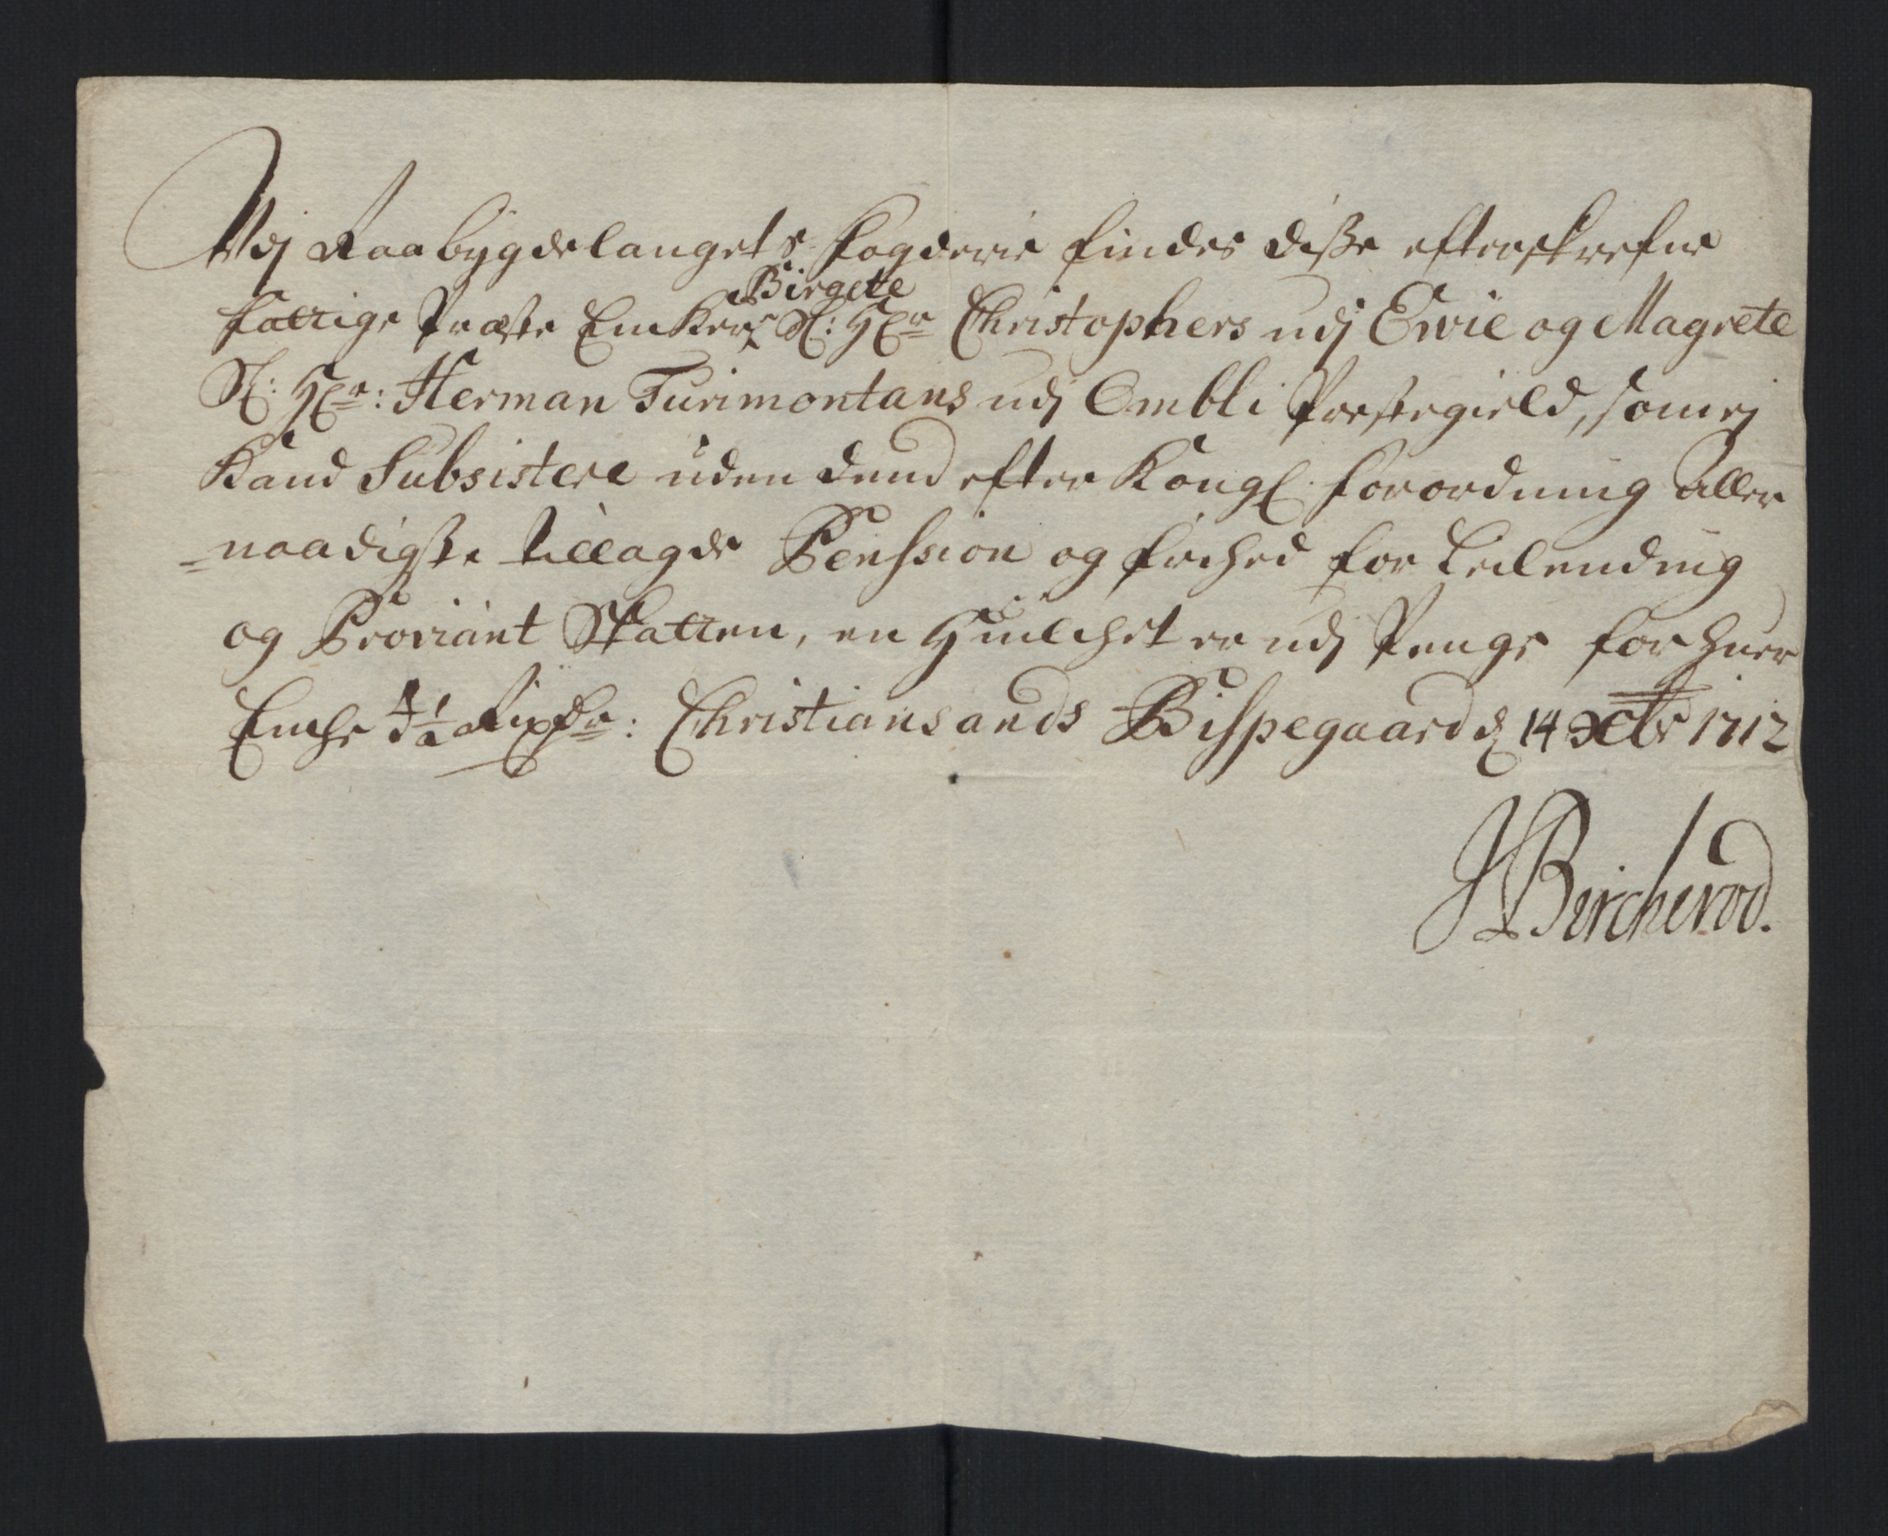 Udj Raabÿgdelauget's Fogderie findes disse efterskrefne
Birgete
fattige Præste Encker Sl: Hr: Christophers udj Ewie og Magrete
Sl: Hr: Herman Turimontans udj Ombli Prestegield, som ej
Kand Subsistere uden dend efter Kongl: forordning Aller
=naadigste tillagde Penssion og frihed for Leilending
og Proviant Skatten, en huilchet er udj Penge for huer
Enche 4½ Rixdr: Christiansands Bispegaard d 14 Xbr 1712
JBircherod.